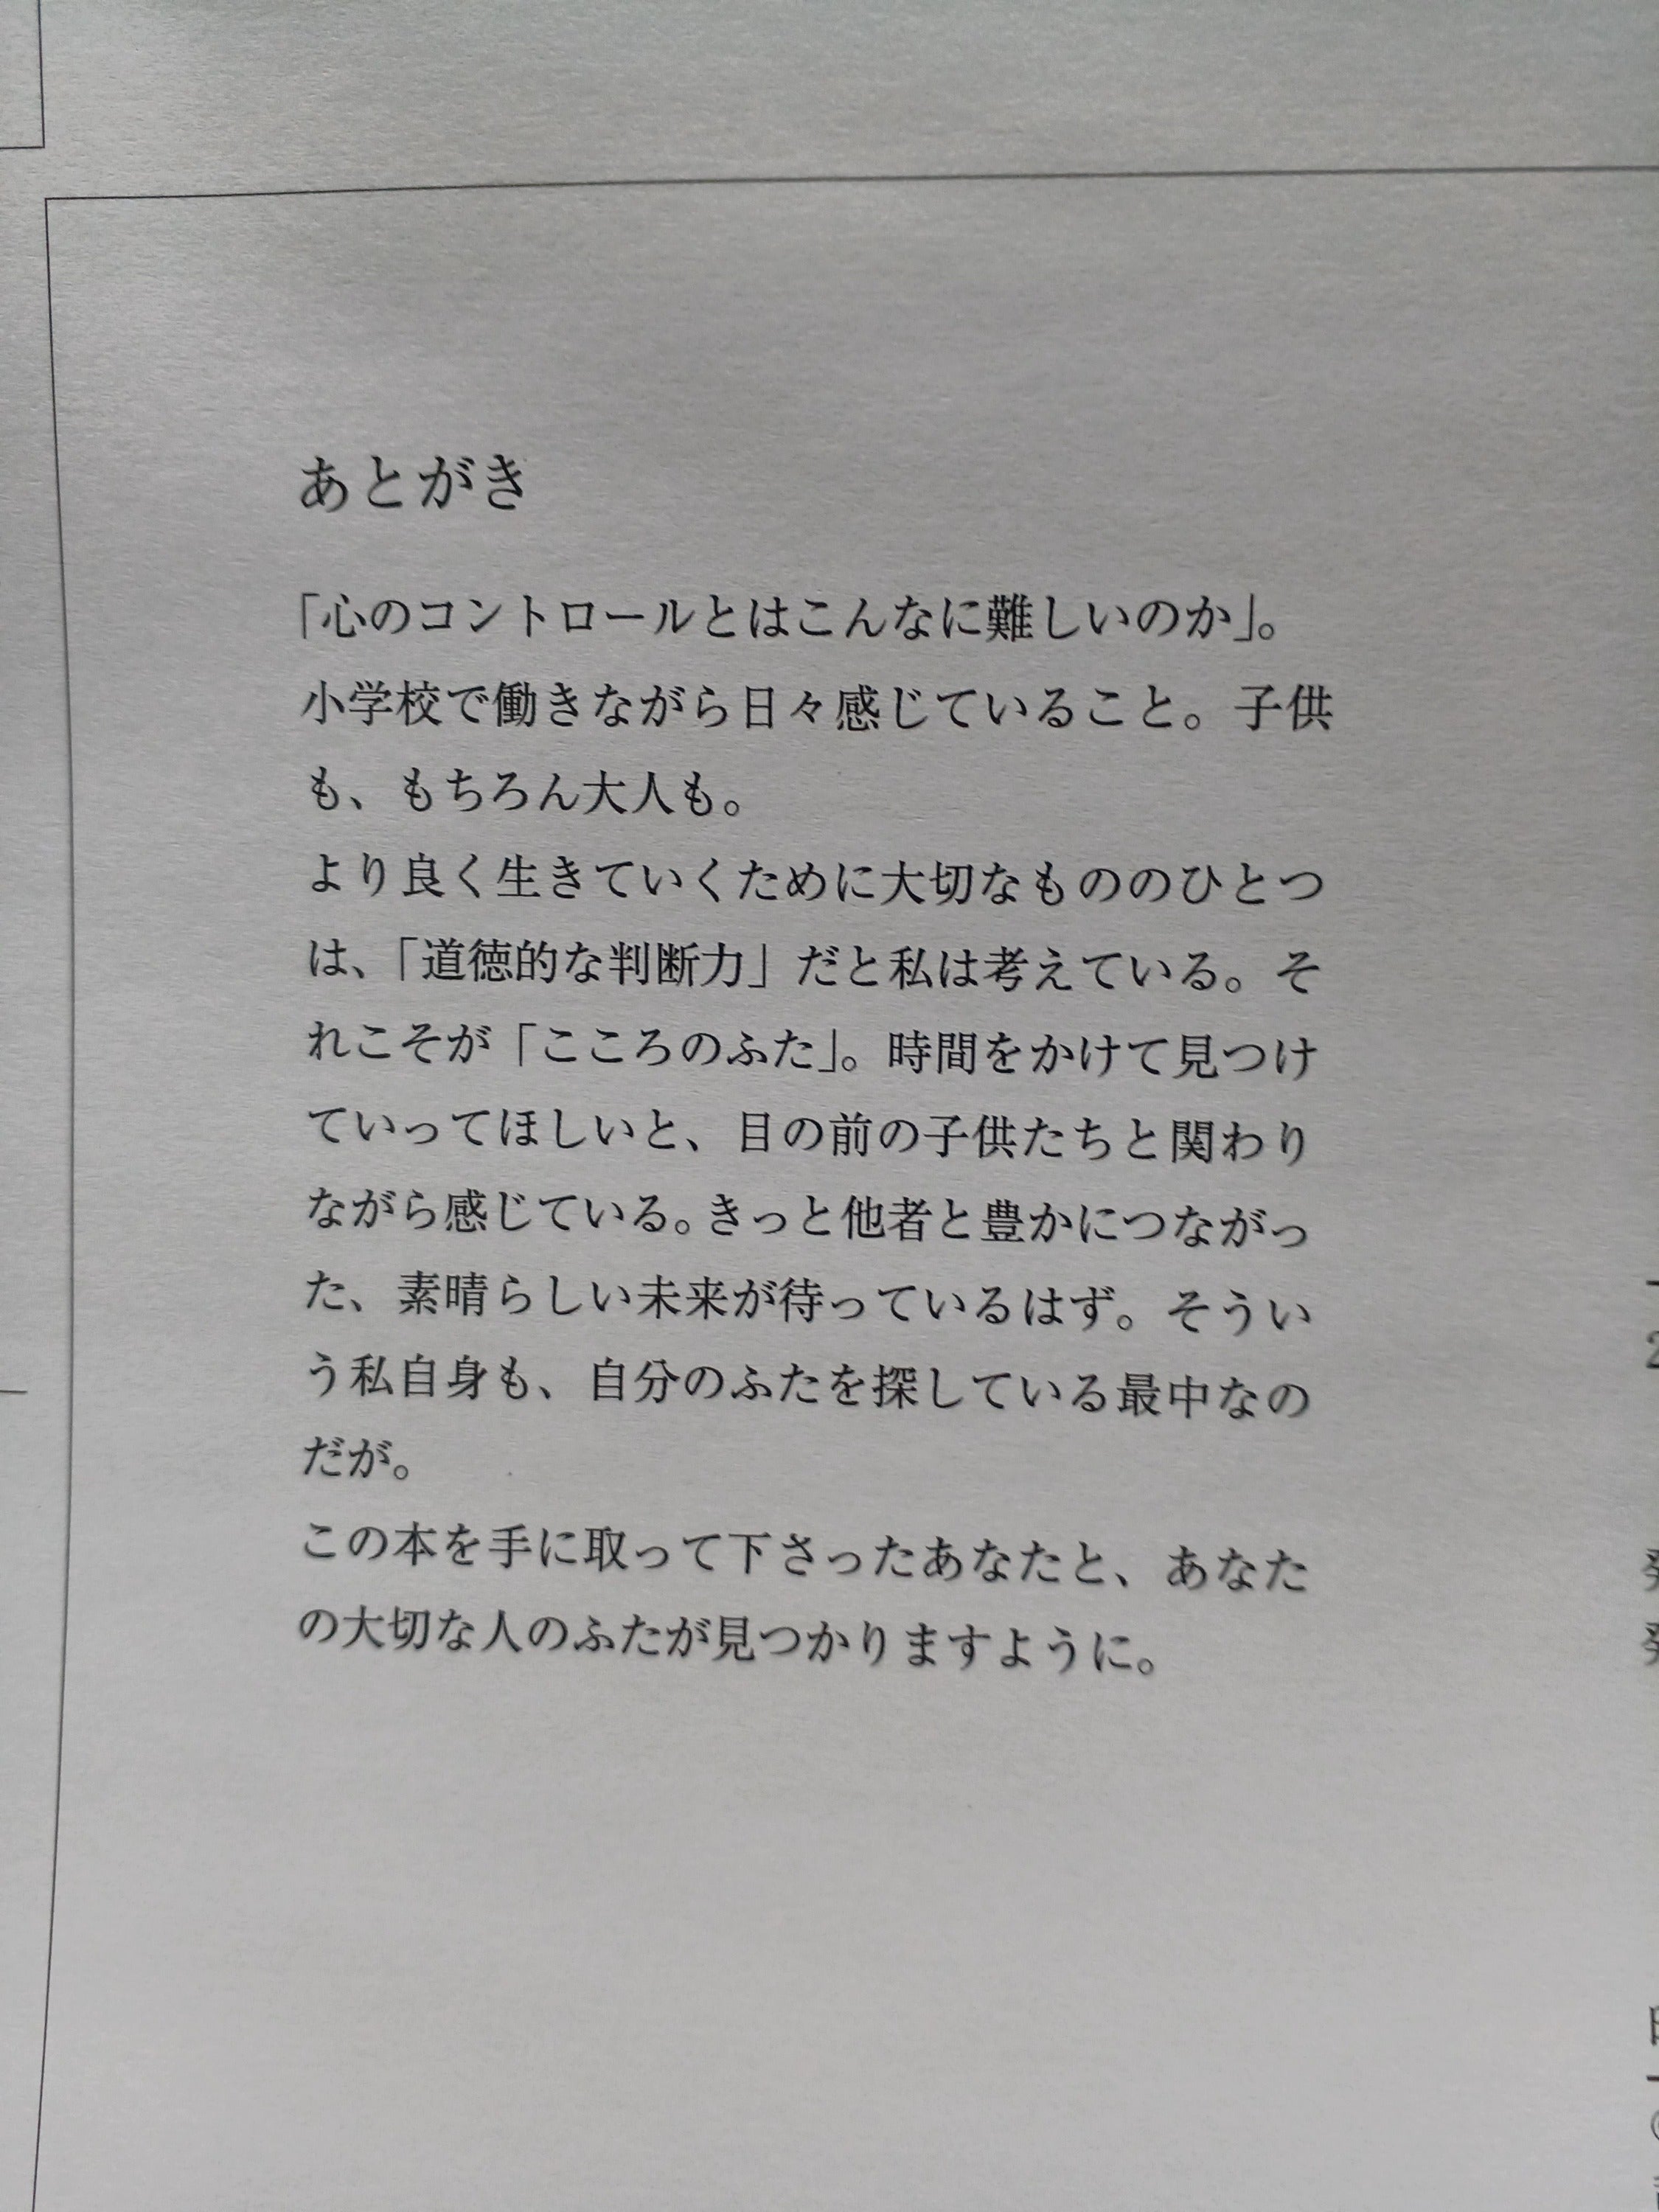 あとがき
「心のコントロールとはこんなに難しいのか」。
小学校で働きながら日々感じていること。子供
も、もちろん大人も。
より良く生きていくために大切なもののひとつ
は、「道徳的な判断力」だと私は考えている。そ
れこそが「こころのふた」。時間をかけて見つけ
ていってほしいと、目の前の子供たちと関わり
ながら感じている。きっと他者と豊かにつながっ
た、素晴らしい未来が待っているはず。そうい
う私自身も、自分のふたを探している最中なの
だが。
この本を手に取って下さったあなたと、あなた
の大切な人のふたが見つかりますように。